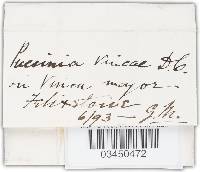 Puccinia Vincae D.C.
on Vinca major
Felixstowe
6/93 — G.M.
03450472